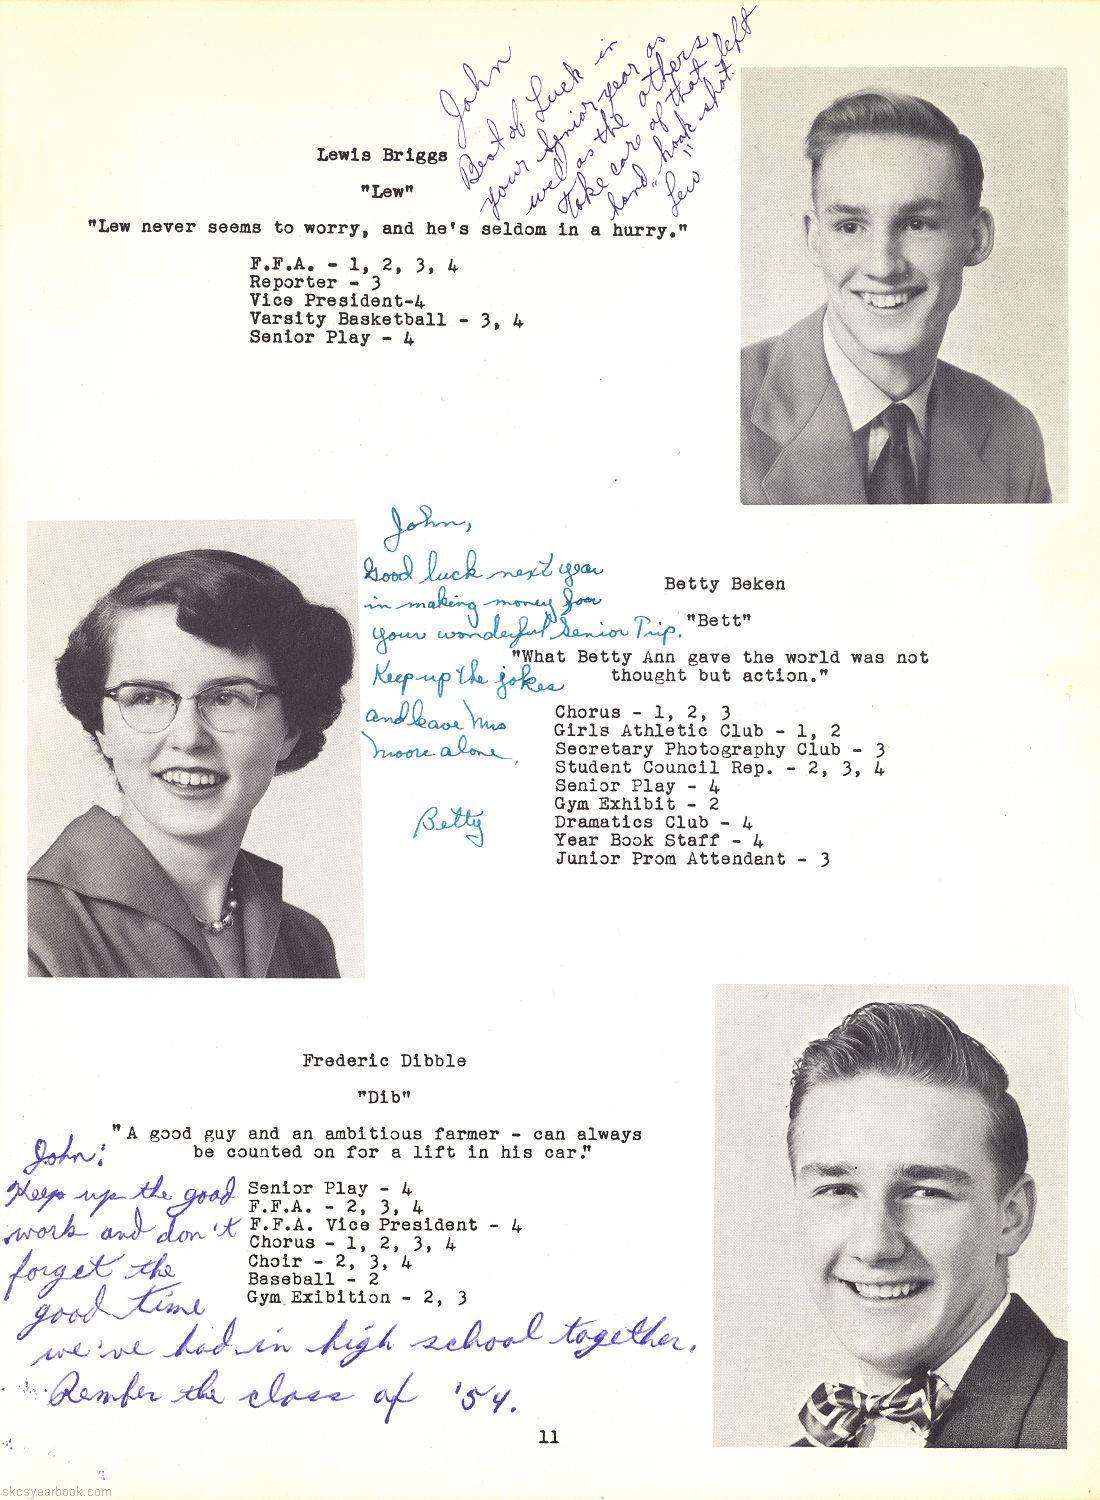 John
Best of Luck in
your Senior year as
well as the others
Take care of that left
hand "hook shot."
Lew
Lewis Briggs
"Lew"
"Lew never seems to worry, and he's seldom in a hurry."
F.F.A. - 1, 2, 3, 4
Reporter - 3
Vice President-4
Varsity Basketball - 3, 4
Senior Play - 4
John,
Good luck next year
in making money for
your wonderful Senior Trip.
Keep up the jokes
and leave Mrs
Moore alone.
Betty
Betty Beken
"Bett"
"What Betty Ann gave the world was not
thought but action."
Chorus - 1, 2, 3
Girls Athletic Club - 1, 2
Secretary Photography Club - 3
Student Council Rep. - 2, 3, 4
Senior Play - 4
Gym Exhibit - 2
Dramatics Club - 4
Year Book Staff - 4
Junior Prom Attendant - 3
Frederic Dibble
"Dib"
"A good guy and an ambitious farmer - can always
be counted on for a lift in his car."
Senior Play - 4
F.F.A. - 2, 3, 4
F.F.A. Vice President - 4
Chorus - 1, 2, 3, 4
Choir - 2, 3, 4
Baseball - 2
Gym Exibition - 2, 3
John:
Keep up the good
work and don't
forget the
good time
we've had in high school together.
Rember the class of '54.
11
skcsyearbook.com